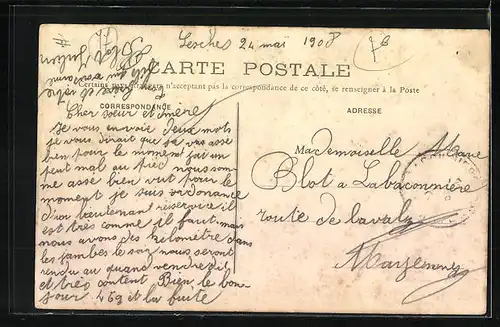 Lesches 24 mai 1908
CARTE POSTALE
Certains pays étrangers n'acceptant pas la correspondance de ce côté, se renseigner à la Poste
CORRESPONDANCE
ADRESSE
Cher sœur et mère
je vous envoie deux mots
je vous dirait que sa vas assé
bien pour le moment fait un
peut mal au pied nous som
me assé bien vut pour le
moment je suis ordonance
d'un lieutenant réserviste il
est très comme il faut mais
nous avons des kilomètre dans
les jambes le soir nous seront
rendu au quand vendredi
et très content Bien le bon
jour 469 et la fuite
Mademoiselle Marie
Blot a Labaconnière
route de laval
Mayenne